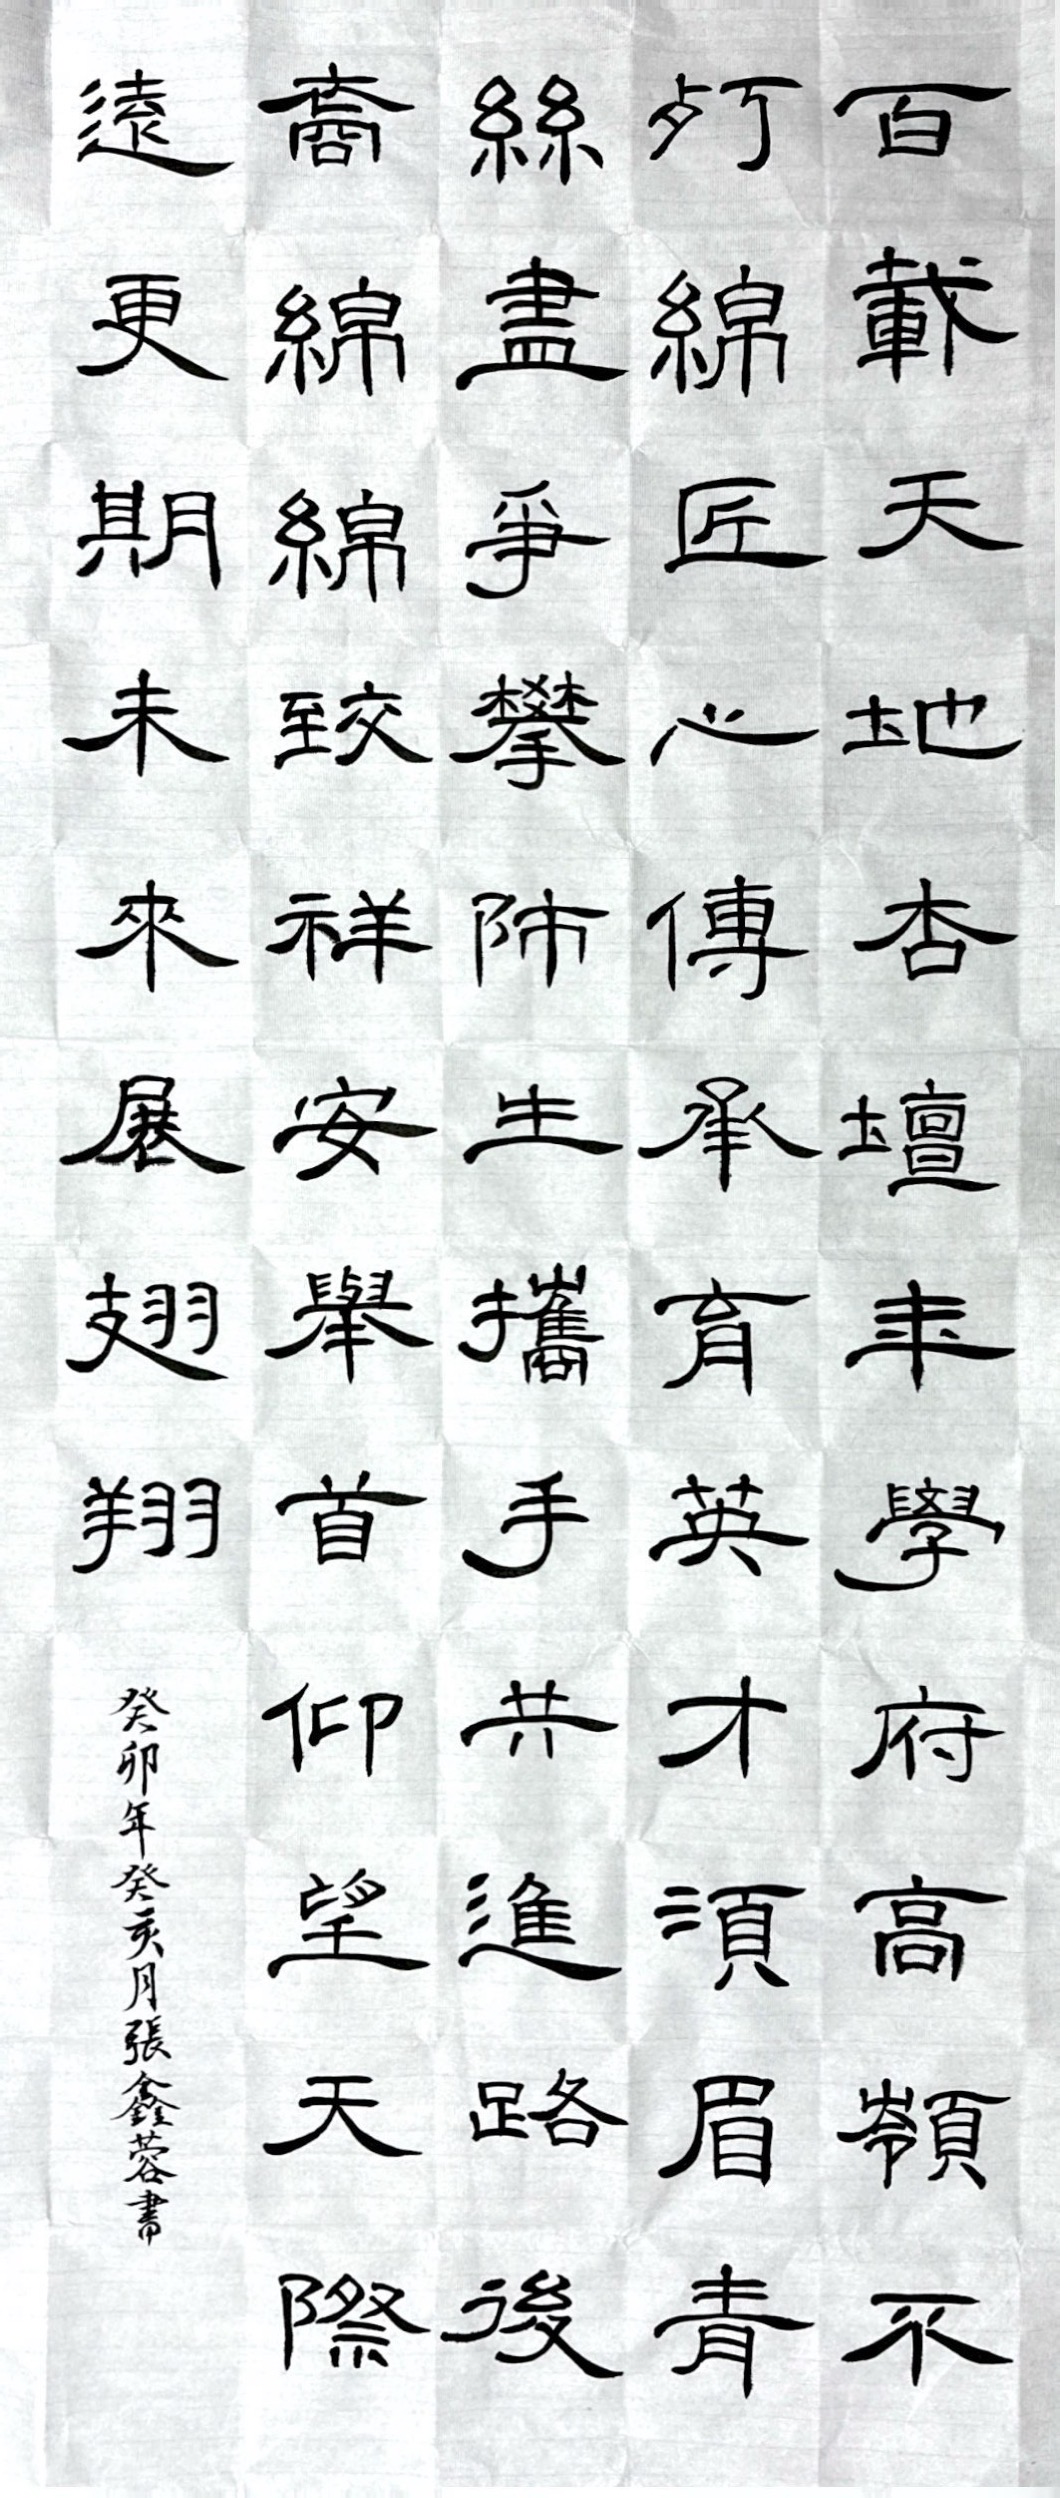 百載天地杏壇年學府高嶺不
朽綿匠心傳承育英才須眉青
絲盡爭攀師生攜手共進路後
裔綿綿致祥安舉首仰望天際
遠更期未來展翅翔
癸卯年癸亥月張鑫蓉書